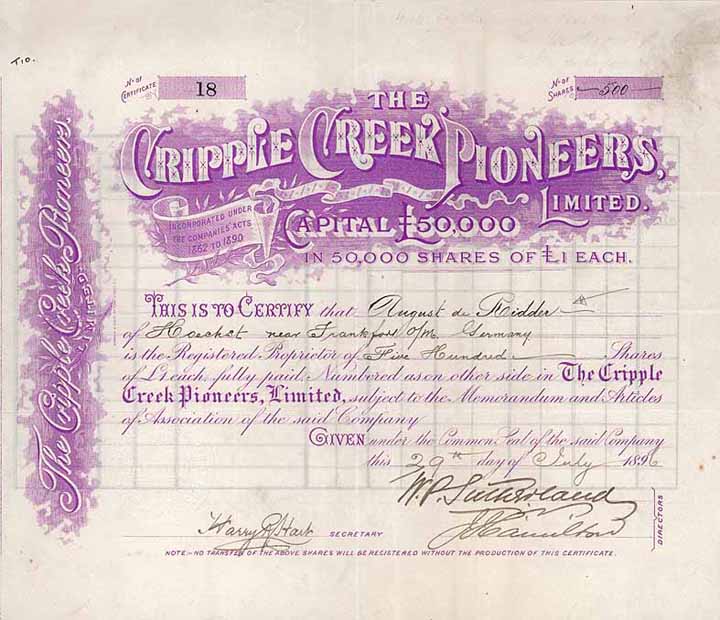 T.O.
No. OF CERTIFICATE 18
No. OF SHARES 500
THE
CRIPPLE CREEK PIONEERS,
LIMITED.
INCORPORATED UNDER
THE COMPANIES' ACTS
1862 TO 1890
CAPITAL £50,000
IN 50,000 SHARES OF £1 EACH.
The Cripple Creek Pioneers,
LIMITED.
THIS IS TO CERTIFY that August de Ridder
of Hoechst near Frankfort O/M. Germany
is the Registered Proprietor of Five Hundred Shares
of £1 each, fully paid, Numbered as on other side in The Cripple
Creek Pioneers, Limited, subject to the Memorandum and Articles
of Association of the said Company
GIVEN under the Common Seal of the said Company
this 29th day of July 1896
W. P. Sutherland
J Hamilton
DIRECTORS
Harry R. Hart SECRETARY
NOTE:- NO TRANSFER OF THE ABOVE SHARES WILL BE REGISTERED WITHOUT THE PRODUCTION OF THIS CERTIFICATE.